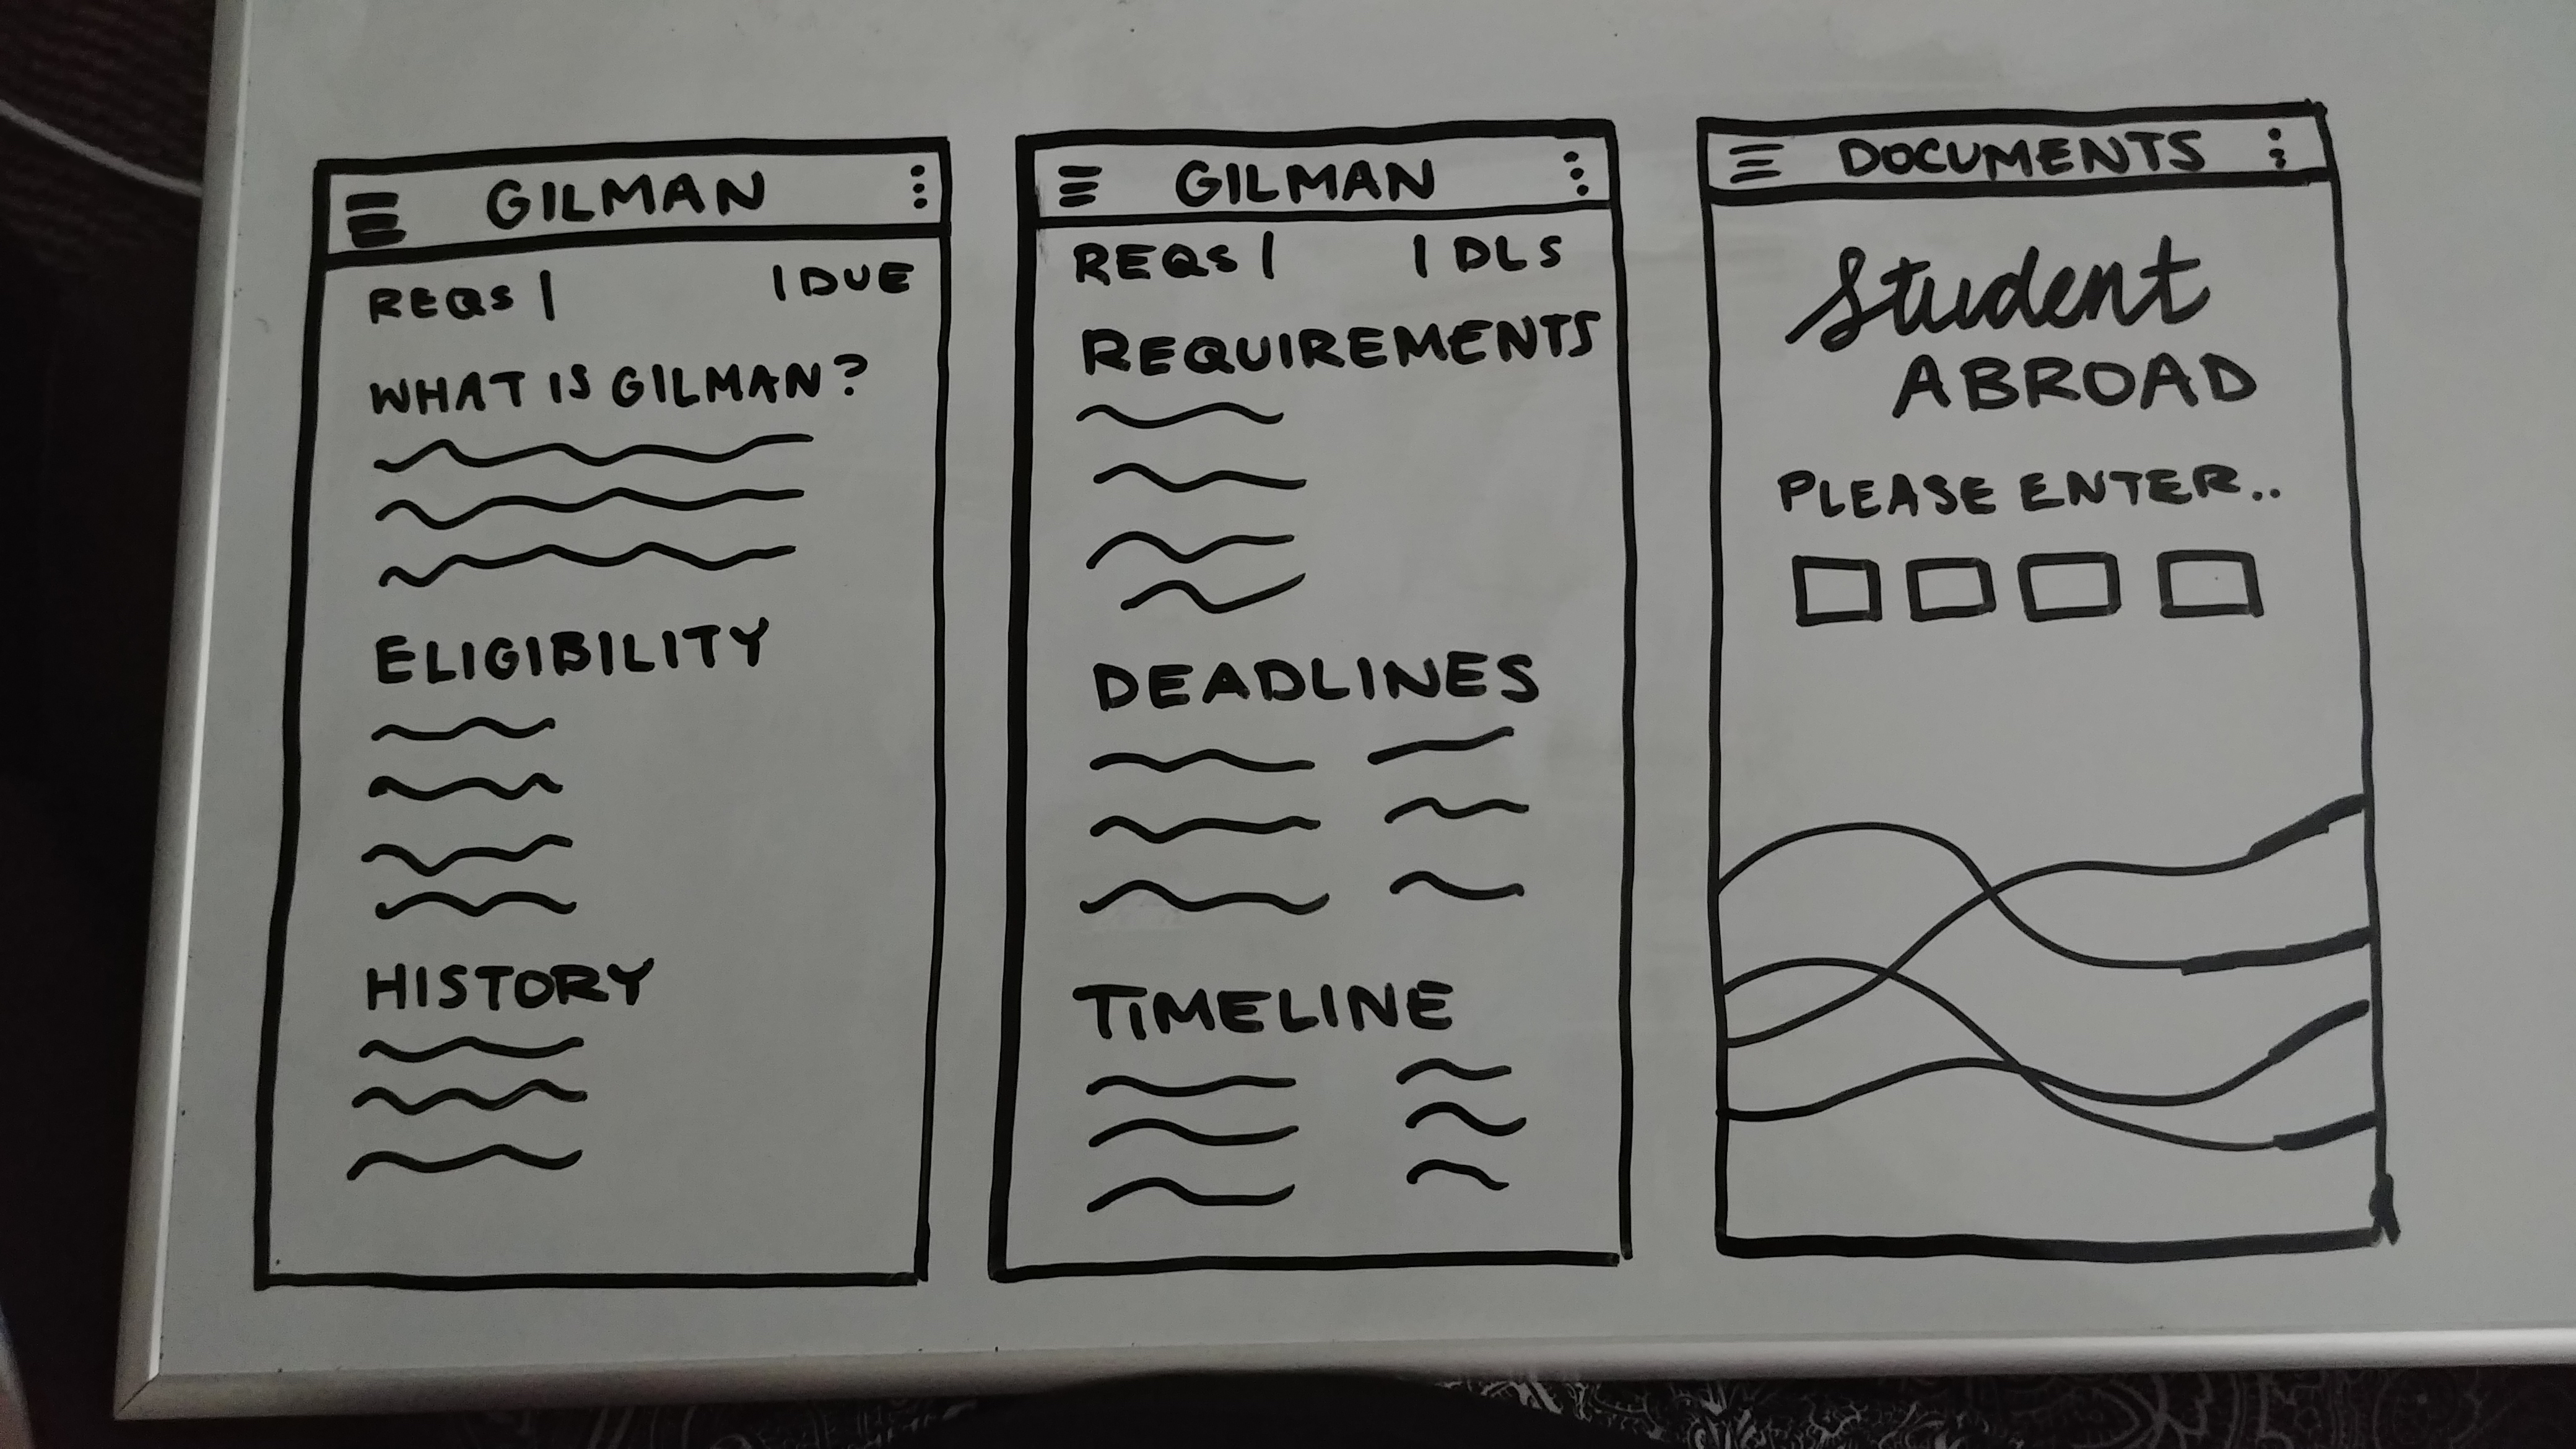 GILMAN
REQS | | DUE
WHAT IS GILMAN?
ELIGIBILITY
HISTORY
GILMAN
REQS | | DLS
REQUIREMENTS
DEADLINES
TIMELINE
DOCUMENTS
Student
ABROAD
PLEASE ENTER..